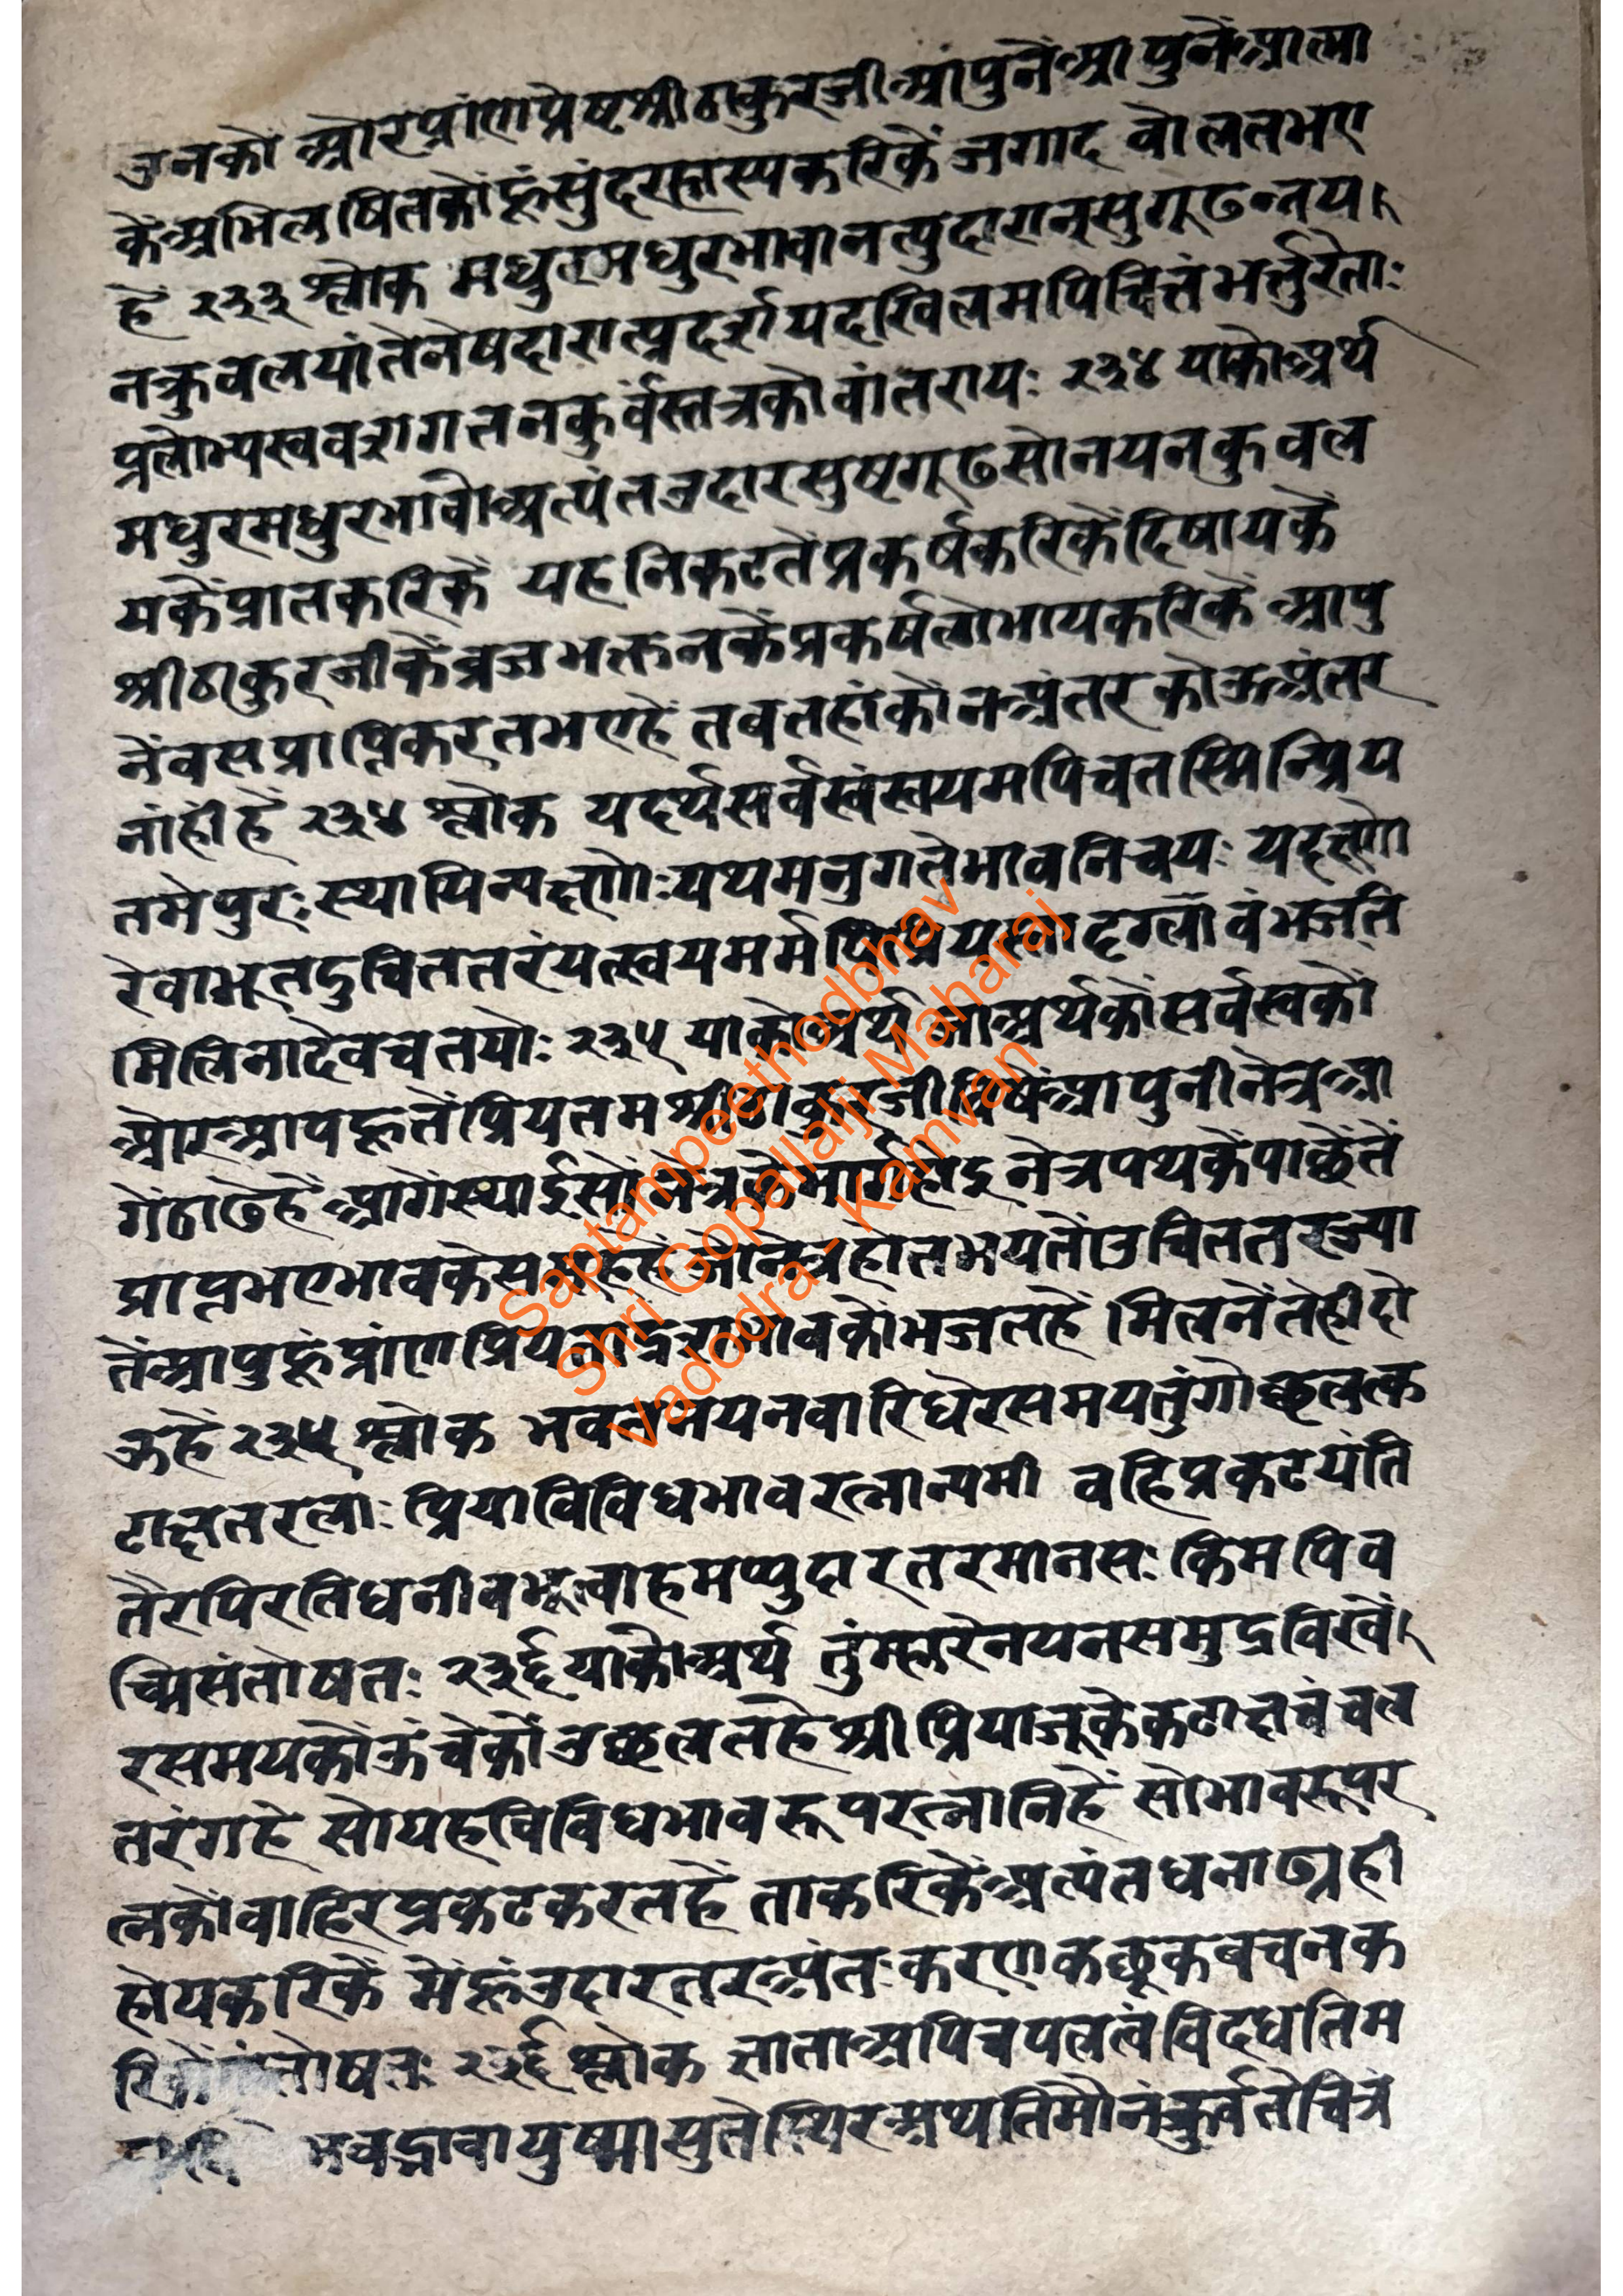 उनको औरप्रांणप्रेष्टश्रीठाकुरजीआंपुनेंआपुनेंआत्मा
कैंअभिलषितकोंहूंसुंदरहास्यकरिकें जगाद बोलतभए
हें २३३ श्लोक मधुरमधुरभावानत्युदारान्सुगूढन्नय
नकुवलयांतेनेषदारात्प्रदर्श्ययदखिलमपिचित्तंभर्तुरेताः
प्रलोभ्यस्ववशगतनकुर्वंस्तत्रकोवांतरायः २३४ याकोअर्थ
मधुरमधुरभावोअत्यंतउदारसुष्टगूढसोनयनकुवल
यकेंप्रातकरिकें यहनिकटतेंप्रकर्षकरिकेंदिषायकें
श्रीठाकुरजीकेंव्रजभक्तनकेंप्रकर्षलोभायकरिकें आपु
नेंवसप्राप्तिकरतभएहें तबतहांकोनअंतरकोऊअंतर
नांहींहें २३४ श्लोक यदर्थंसर्वस्वंस्वयमपिचतस्मिन्प्रिय
तमेपुरःस्थायिन्यक्ष्णोःपथमनुगतेभावनिचयः यदक्ष्णो
रेवाभूतदुचिततरंयत्स्वयमर्मपिप्रियस्तादृग्भावंभजति
मिलिनादेवचतयोः २३५ याकोअर्थ जाअर्थकोंसर्वस्वकों
औरआपहूतेंप्रियतमश्रीठाकुरजीविषेंआपुनीनेत्रआ
गेंठाढेहें आगेंस्थाईसोंनेत्रकेमार्गहादुनेत्रपथकेंपाछेंतें
प्राप्तभएभावकेसमूहहेंजोनेत्रहोतभयतोउचिततरज्या
तेंआपुहूंप्रांणप्रियतादृशभावकोंभजतहें मिलनेंतेहीदो
ऊहें २३५ श्लोक भवन्नयनवारिधेरसमयतुंगोच्छलत्क
टाक्षतरलाः प्रियाविविधभावरत्नान्यमी वहिप्रकटयंति
तैरपिरतिधनीवभूत्वाहमप्युदारतरमानसः किमपिव
च्मिसंतोषतः २३६ याकोअर्थ तुंम्हारेनयनसमुद्रविखें
रसमयकोंऊंचेकोंउछलतहेंश्रीप्रियाजूकेकटाक्षचंचल
तरंगहें सोयहविविधभावरूपरत्नानिहें सोभावरूपर
त्नकोंवाहिरप्रकटकरतहें ताकरिकेंअत्यंतधनाढ्यही
होयकरिकें मेंहूंउदारतरअंतःकरणकछूकबचनक
रिकेंसंतोषतः २३६ श्लोक नाताअपिचपलत्वंविदधतिम
भवद्भावायुष्मासुतेस्थिरअथतिमौनंकुर्वतेचित्रं